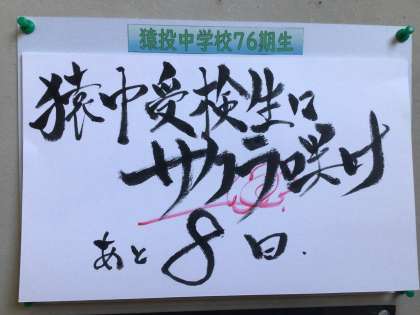 猿投中学校76期生
猿中受検生に
サクラ咲け
あと8日.